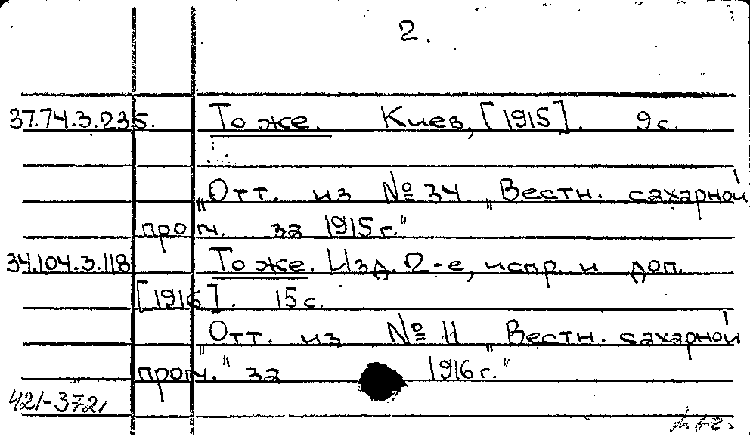 2.
37.74.3.235. То же. Киев, [1915]. 9 с.
„Отт. из № 34 „Вестн. сахарной
пром. за 1915 г."
34.104.3.118 То же. Изд. 2-е, испр. и доп.
[1916]. 15 с.
„Отт. из № 11 „Вестн. сахарной
пром." за 1916 г."
421-372,